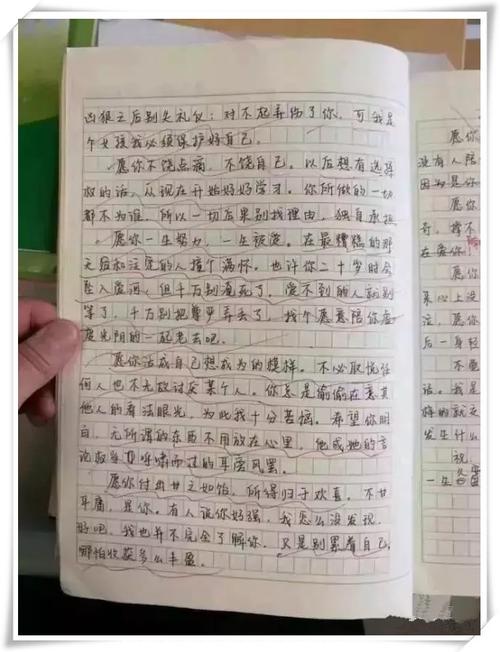 凶狠之后别失礼仪：对不起弄伤了你，可我是
个女孩我必须保护好自己。
愿你不饶点痛，不饶自己。以后想有选择
权的话，从现在开始好好学习。你所做的一切
都不为谁，所以一切后果别找理由，独自承担
愿你一生努力，一生被爱。在最糟糕的那
天后和注定的人撞个满怀。也许你二十岁时会
坠入爱河，但千万别淹死了，爱不到的人就别
等了，千万别把尊严弄丢了，找个愿意陪你虚
度光阴的一起老去吧。
愿你活成自己想成为的模样。不必取悦任
何人也不允放讨厌某个人。你总是偷偷在意其
他人的看法眼光，为此我十分苦恼。希望你明
白，无所谓的东西不用放在心里，他或她的言
论就当是呼啸而过的耳旁风罢。
愿你付出甘之如饴，所得归于欢喜。不甘
平庸，是你。有人说你好强，我怎么没发现，
好吧，我也并不完全了解你。只是别累着自己，
哪怕收获多么丰盈。
愿
没有人陪
因为是你
愿
奇，撑不
在爱你
愿
来心上没
注，愿
后一身轻
不要
话。我是
悔的就
发生什么
祝
一生